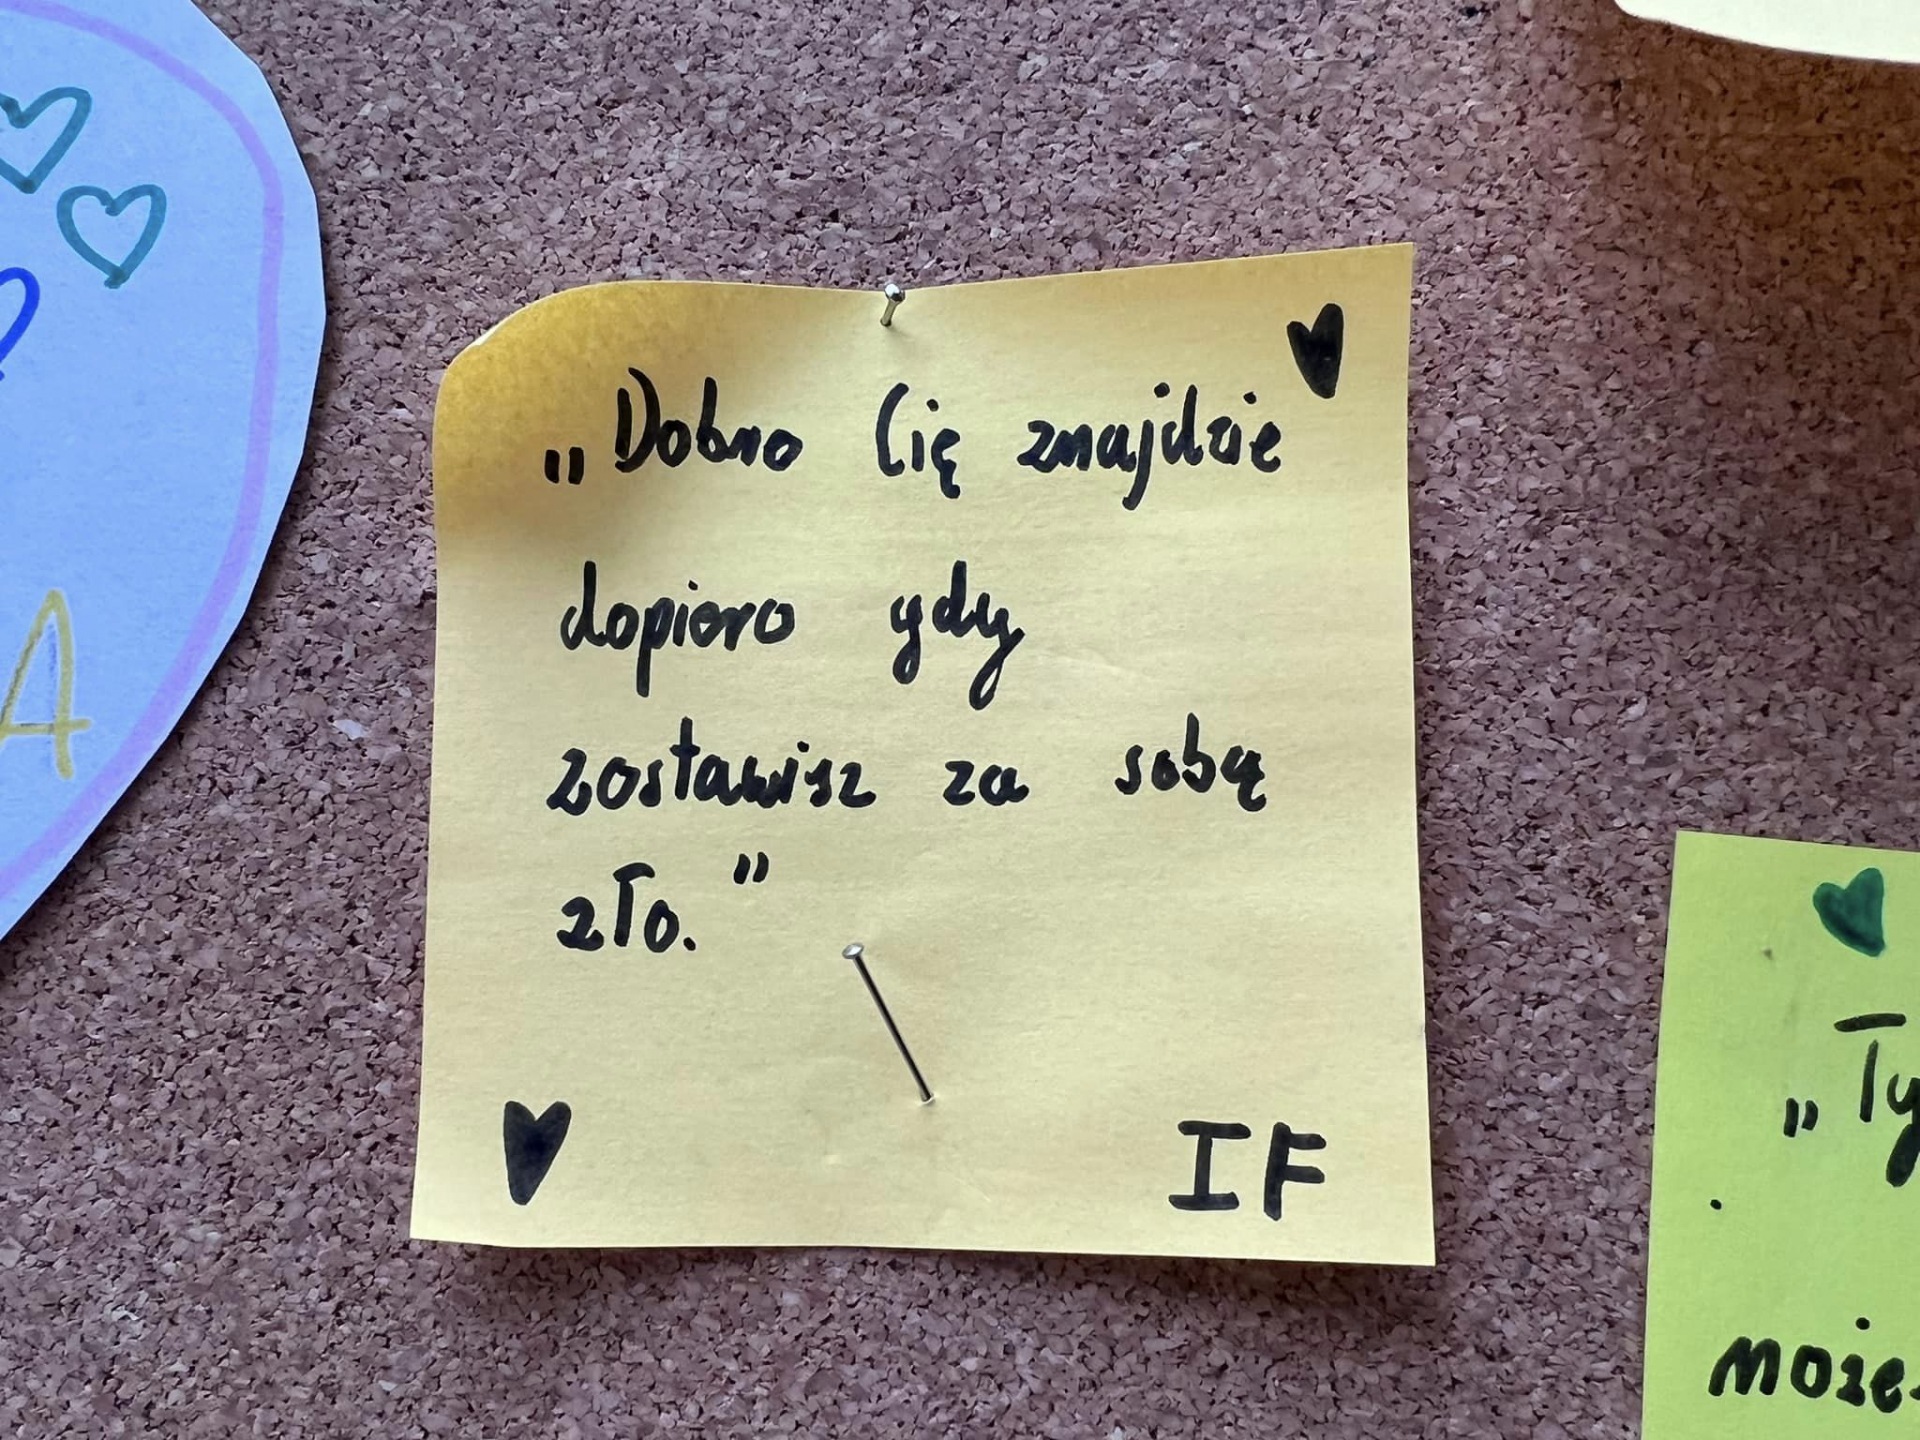 „Dobro Cię znajdzie
dopiero gdy
zostawisz za sobą
zło.”
IF
A
„Ty
może